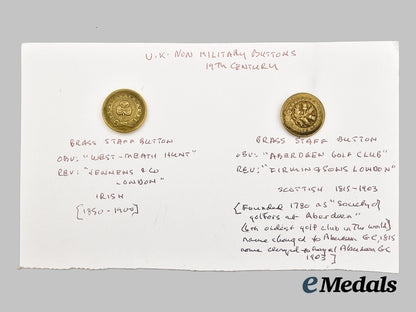 U.K. NON MILITARY BUTTONS
19TH CENTURY
BRASS STAFF BUTTON
OBV: "WEST-MEATH HUNT"
REV: "JENNENS & CO
LONDON"
IRISH
[1850-1900]
BRASS STAFF BUTTON
OBV: "ABERDEEN GOLF CLUB"
REV: "FIRMIN & SONS LONDON"
SCOTTISH 1815-1903
[Founded 1780 as "Society of
golfers at Aberdeen"
(6th oldest golf club in the world)
name changed to Aberdeen GC, 1815
name changed to Royal Aberdeen GC
1903]
eMedals